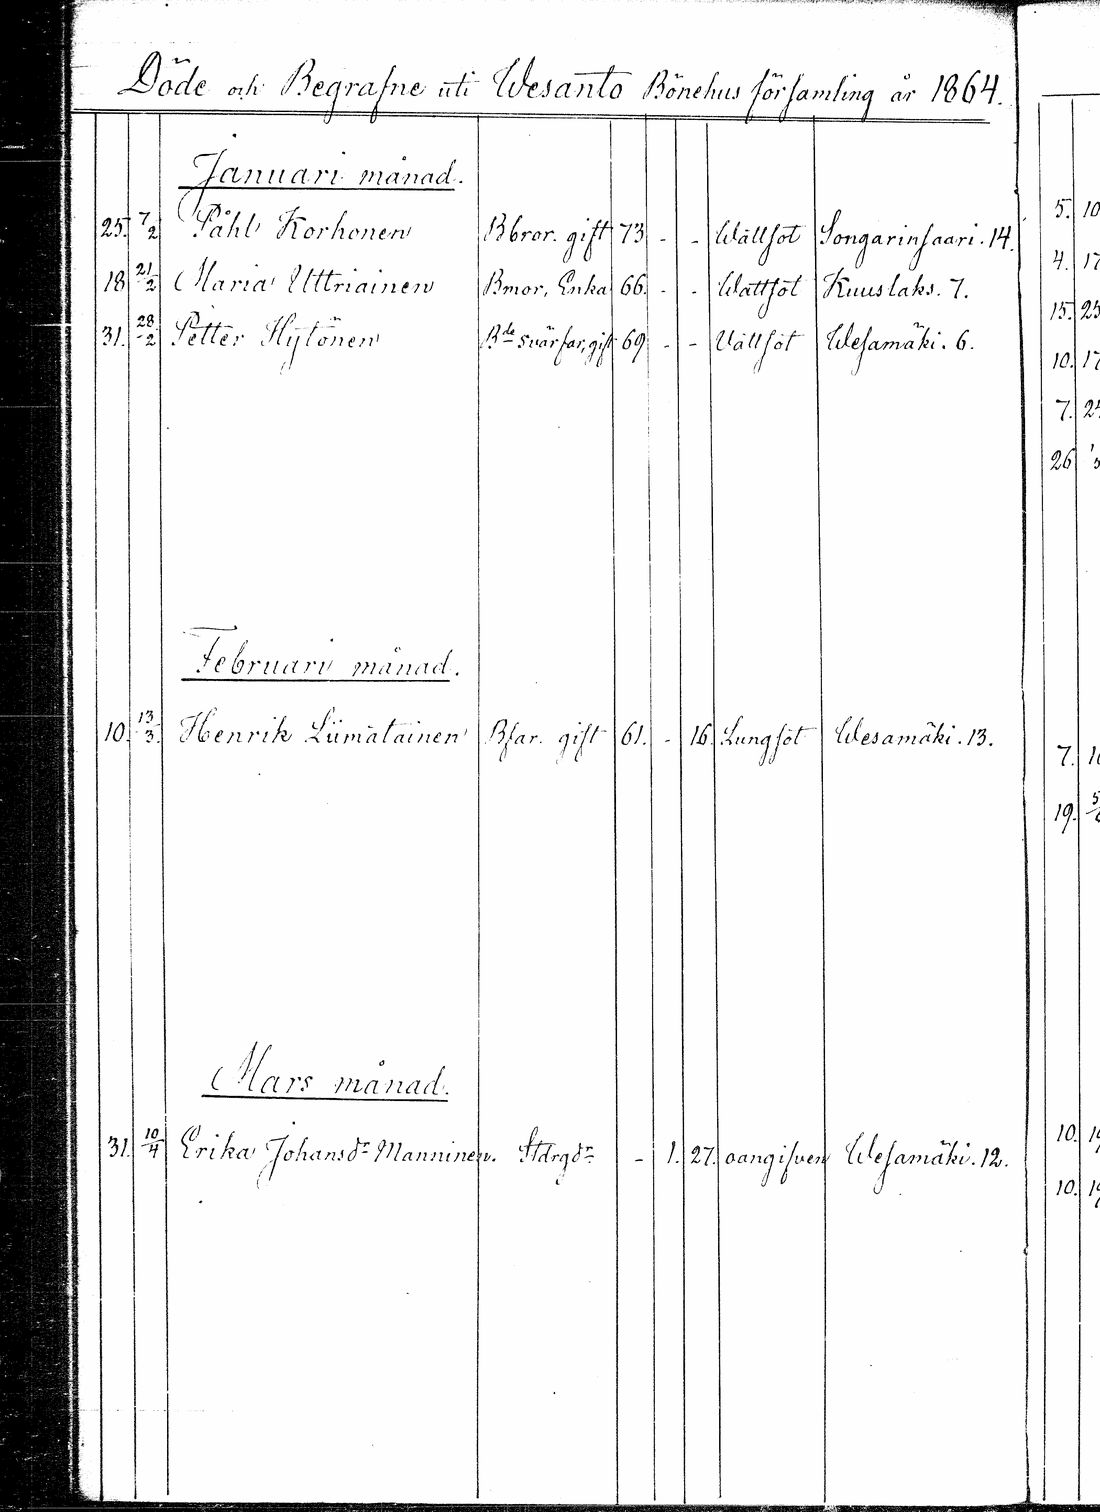 Döde och Begrafne uti Wesanto Bönehus församling år 1864.
Januari månad.
25. 7/2 Påhl Korhonen Bbror. gift 73 - - Wattsot Songarinsaari. 14.
18 21/2 Maria Uttriainen Bmor, Enka 66. - - Wattsot Kuuslaks. 7.
31. 28/2 Petter Hytönen Bde svärfar, gift 69 - - Vattsot Wesamäki. 6.
Februari månad.
10. 13/3. Henrik Liimatainen Bfar. gift 61. - 16. Lungsot Wesamäki. 13.
Mars månad.
31. 10/4 Erika Johansdr Manninen. Itdrgdr - 1. 27. oangifven Wesamäki. 12.
5. 10
4. 17
15. 25
10. 17
7.
26
7.
19.
10.
10.